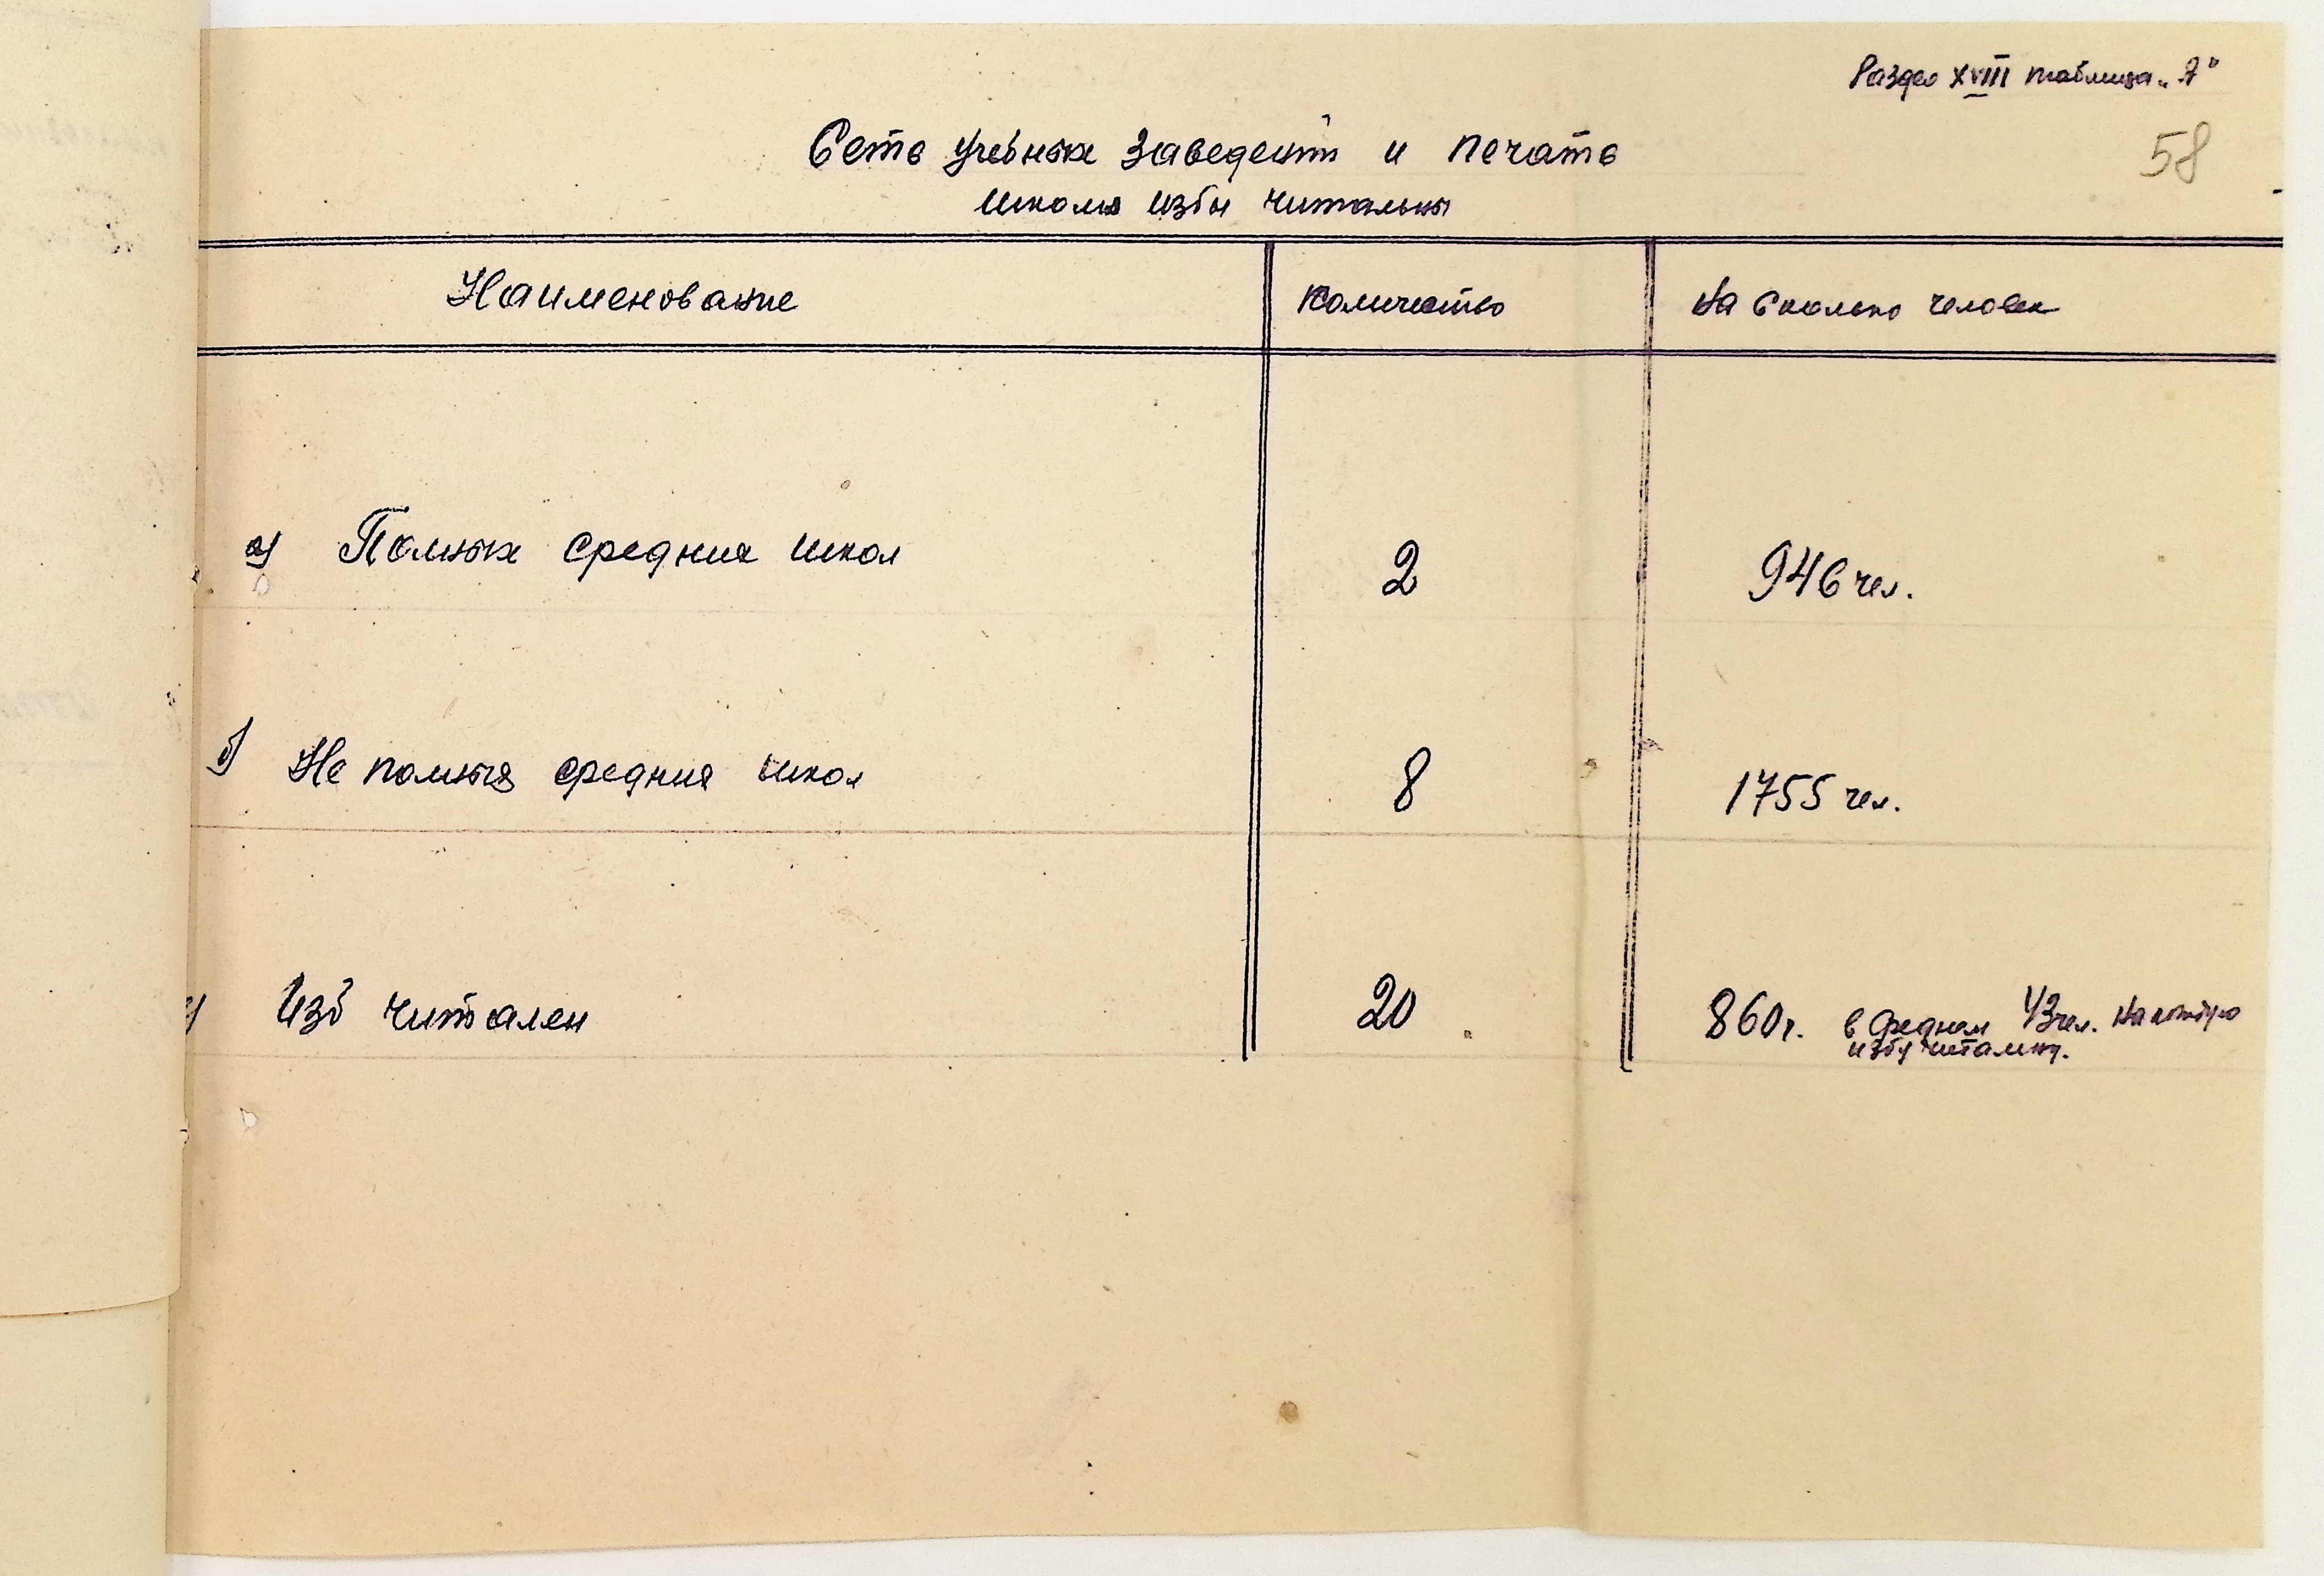 Раздел XVIII таблица „Я"
58
Сеть учебных заведений и печать
Школы избы читальны
Наименование
Количество
На сколько человек
а) Полных средних школ
2
946 чел.
б) Не полных средних школ
8
1755 чел.
Изб читален
20
860ч. в среднем 43чел. на
избу читальну.